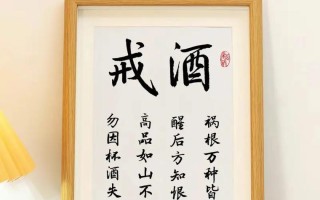 戒酒
祸根万种皆
醒后方知恨
高品如山不
勿因杯酒失